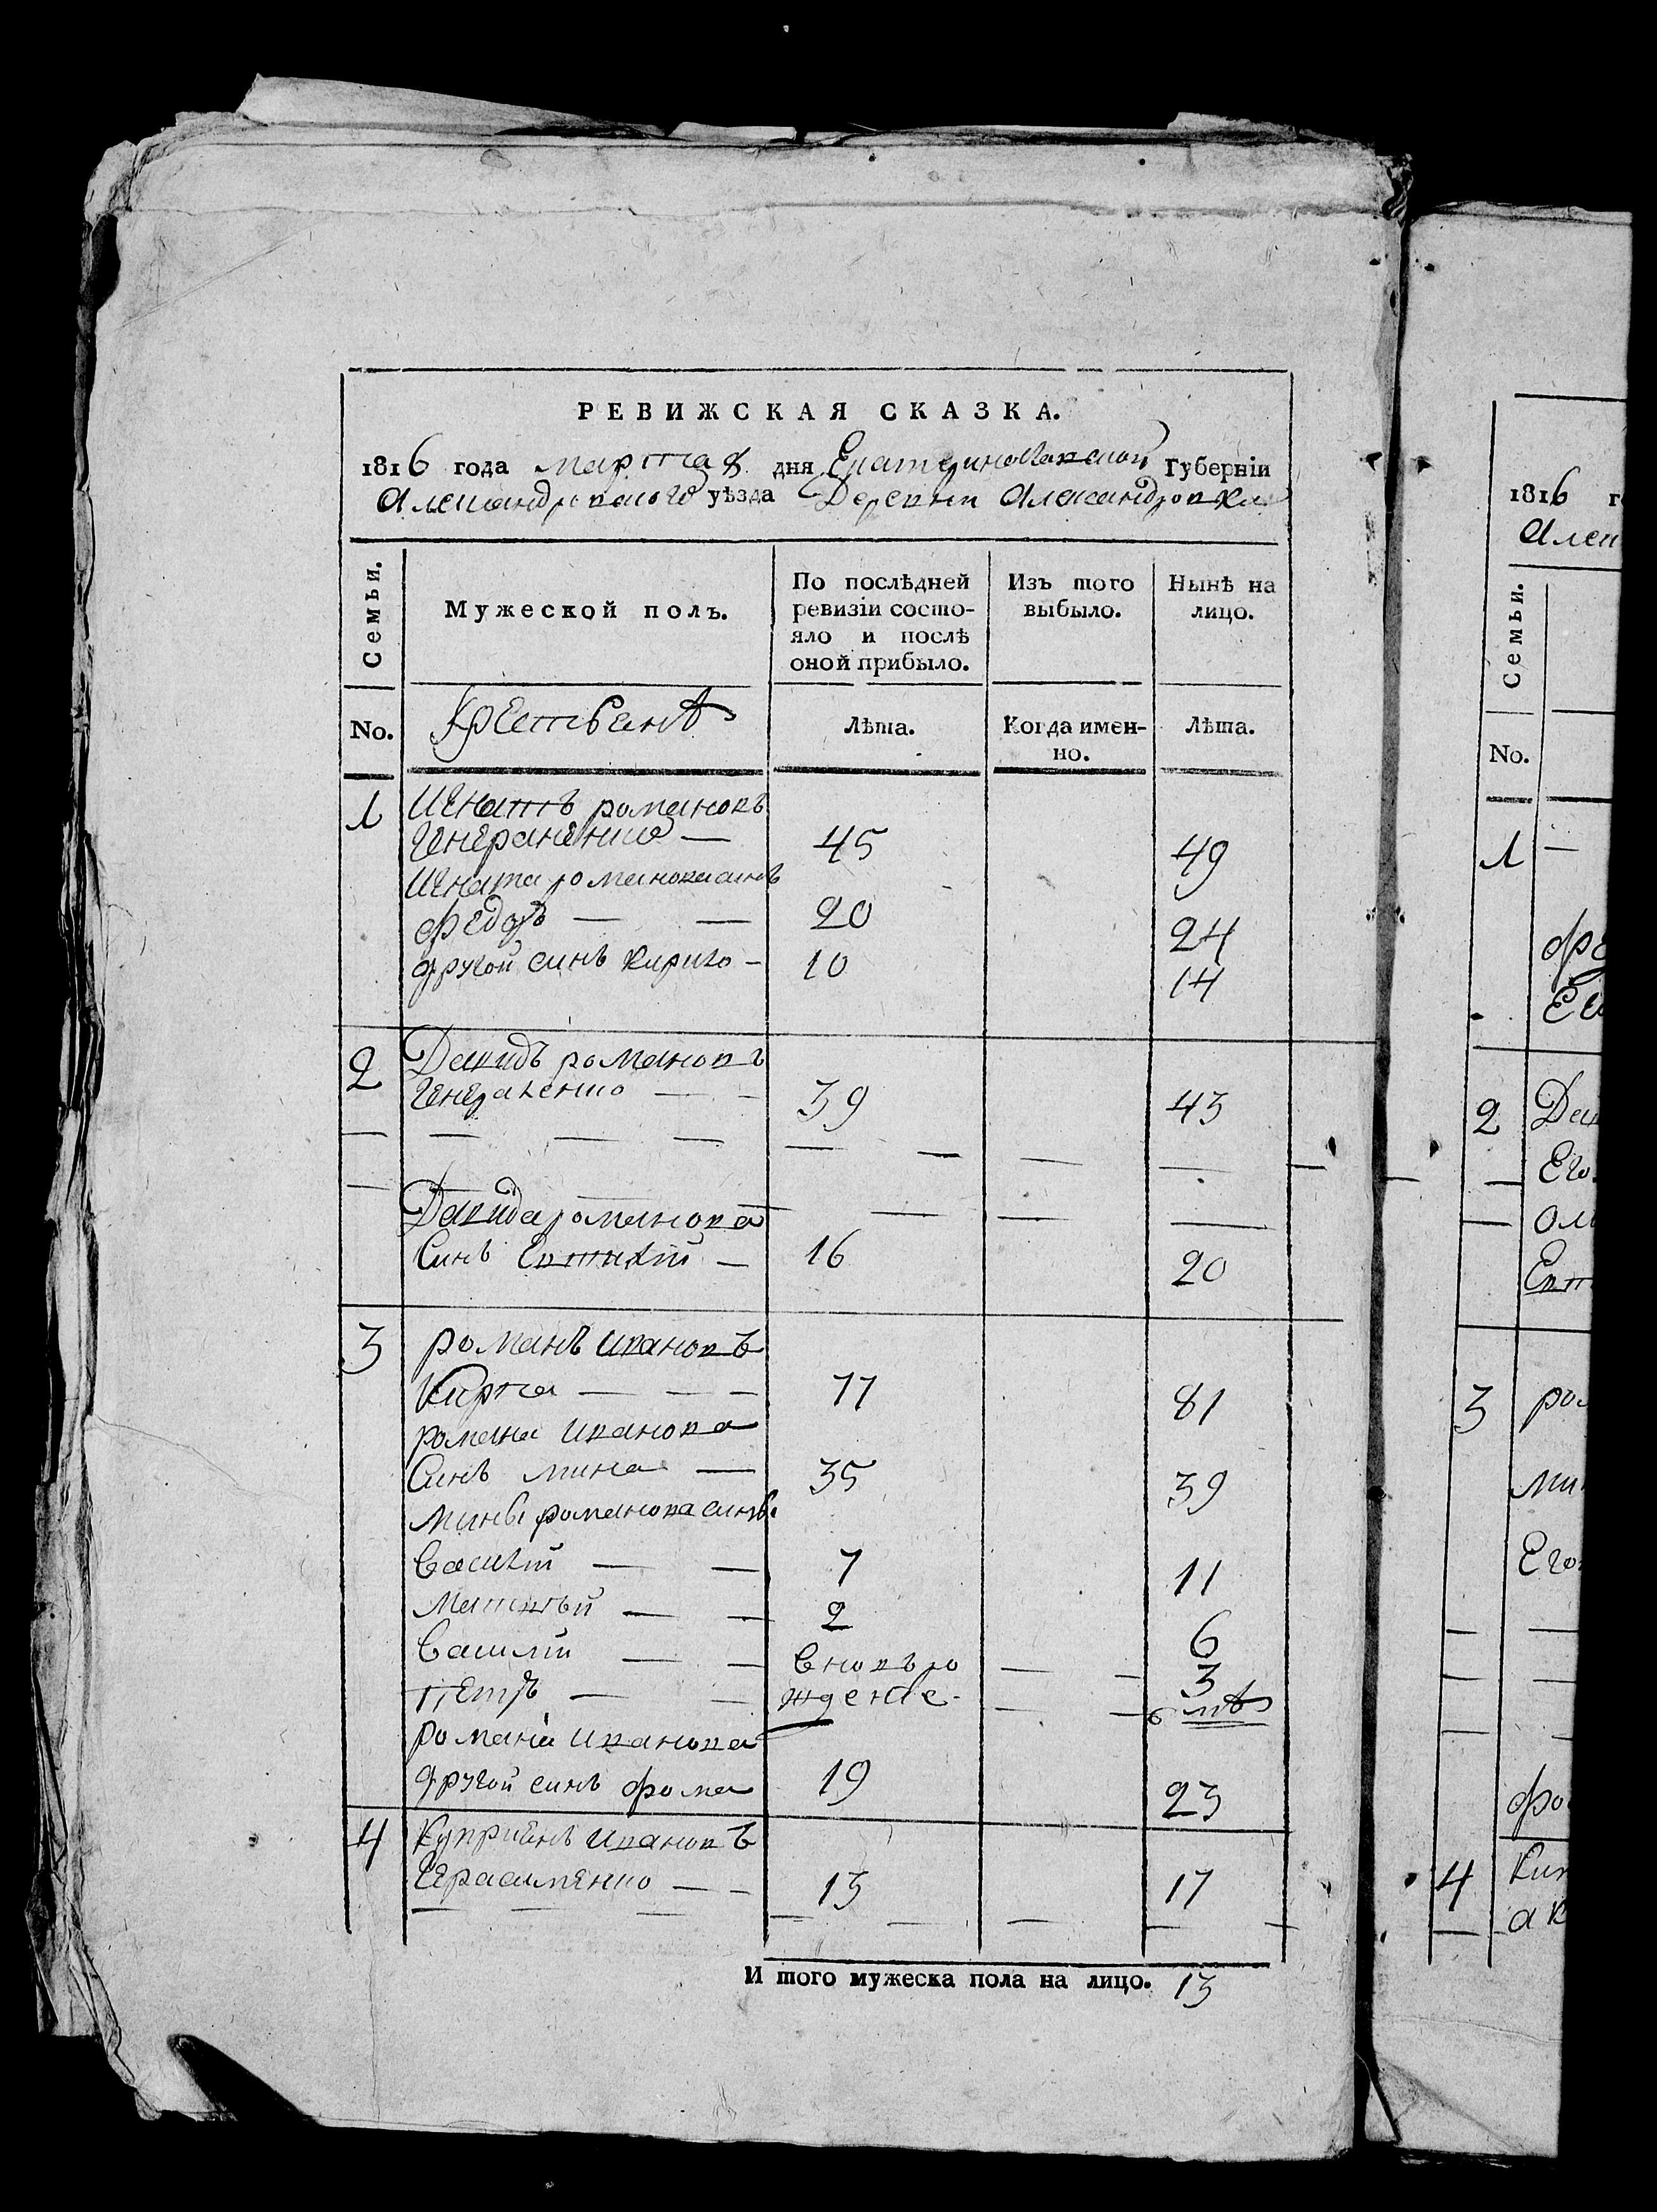 РЕВИЖСКАЯ СКАЗКА.
1816 года марта 8 дня Екатеринославской Губерніи
Александровского уѣзда Деревни Александровки
Семьи.
Мужеской полъ.
По послѣдней ревизіи состо-
яло и послѣ
оной прибыло.
Изъ того
выбыло.
Нынѣ на
лицо.
No.
Лѣта.
Когда имен-
но.
Лѣта.
1 Игнатъ романовъ
45 49
Игната романова синъ
федоръ — — 20 24
другой синъ Кирило — 10 14
2 Давидъ романовъ
39 43
Давида романова
Синъ Евтихій — 16 20
3 романъ ивановъ
77 81
романа иванова
Синъ мина — 35 39
мины романова сини
Василій — — 7 11
Матвѣй — — 2 6
Василій — — вновъ ро — — 3
петръ — — ждение — —
романа иванова
другой синъ фома 19 23
4 Куприянъ ивановъ
Герасименко — — 13 17
И того мужеска пола на лицо. 13
1816
Семьи.
No.
1
2
3
4